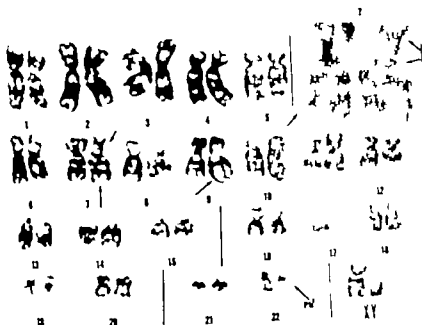 1 2 3 4 5
6 7 8 9 10 12
13 14 15 16 17 18
19 20 21 22 XY